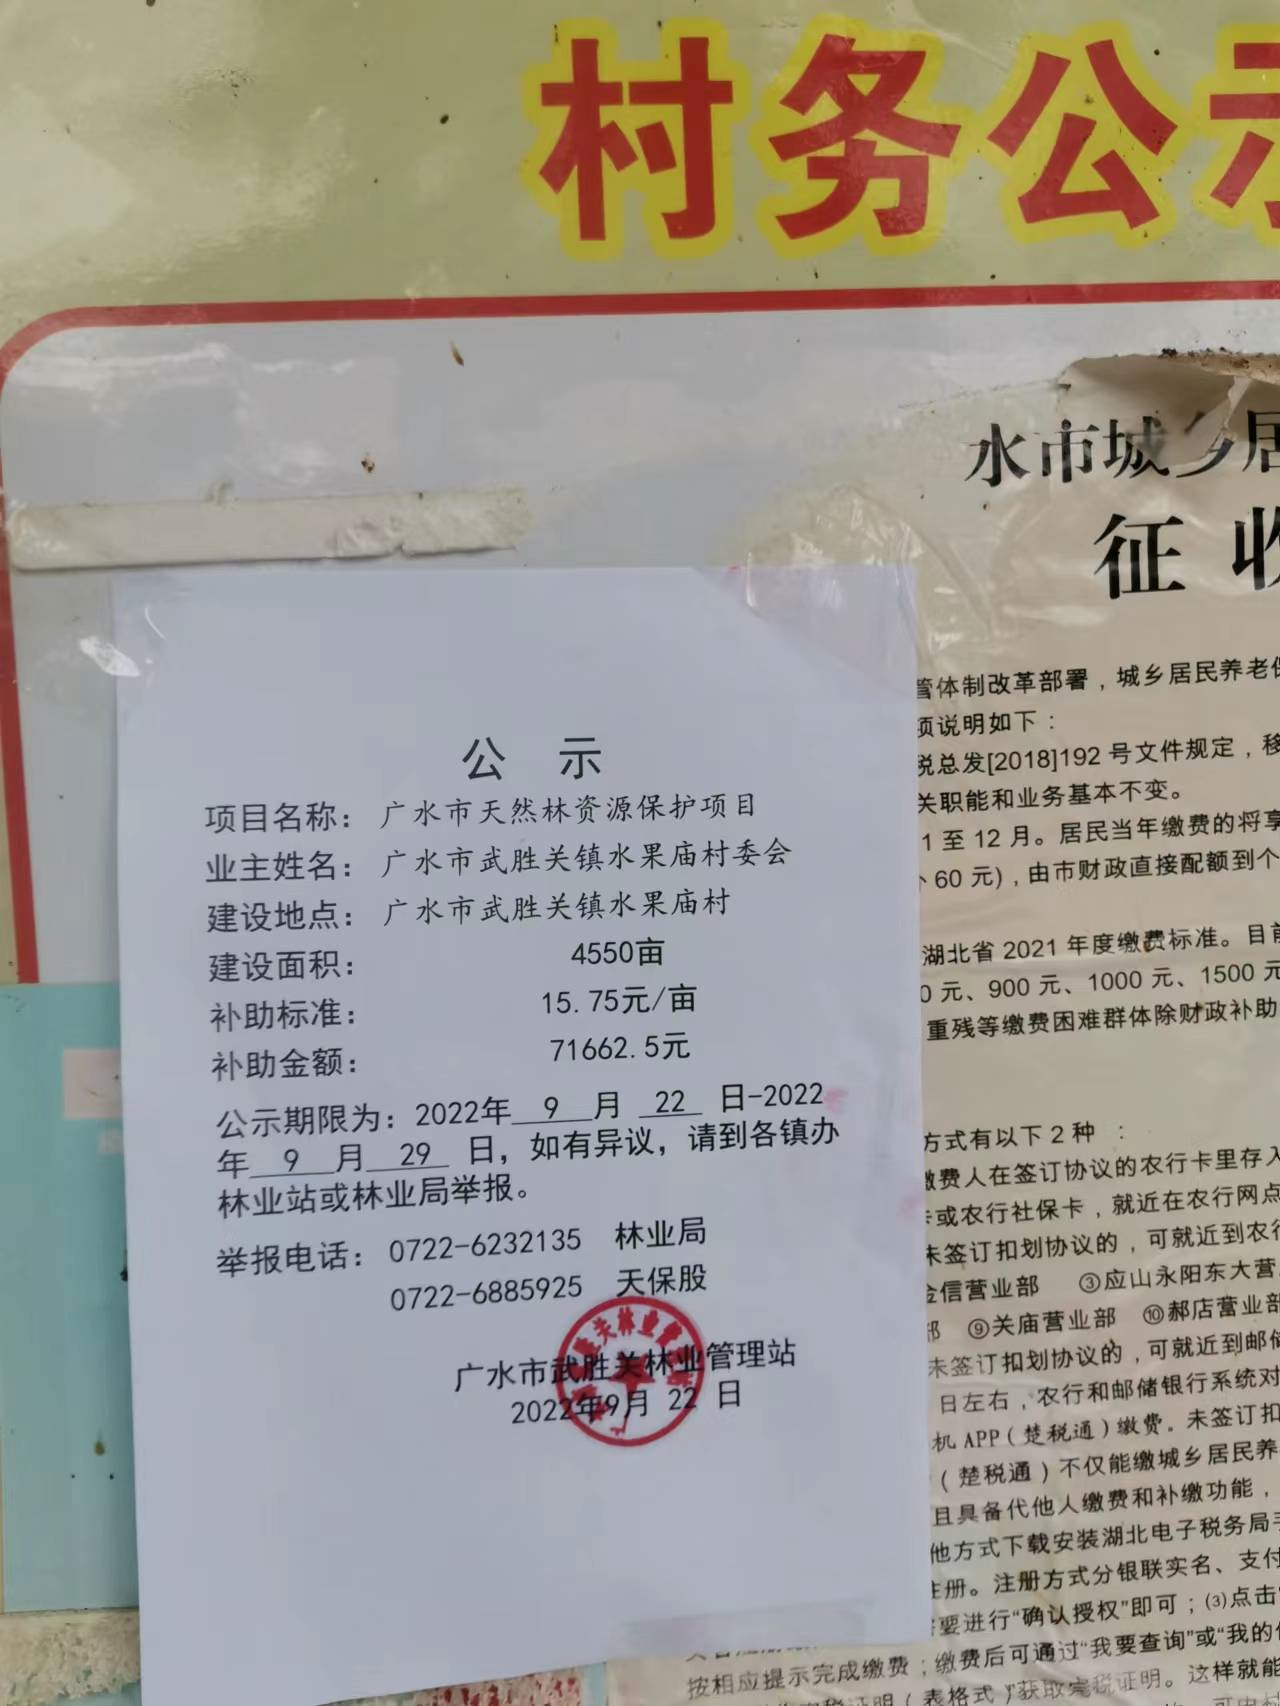 村务公示
水市城乡居
征收
公 示
项目名称： 广水市天然林资源保护项目
业主姓名： 广水市武胜关镇水果庙村委会
建设地点： 广水市武胜关镇水果庙村
建设面积： 4550亩
补助标准： 15.75元/亩
补助金额： 71662.5元
公示期限为：2022年 9 月 22 日-2022
年 9 月 29 日，如有异议，请到各镇办
林业站或林业局举报。
举报电话： 0722-6232135 林业局
0722-6885925 天保股
广水市武胜关林业管理站
2022年9月 22 日
管体制改革部署，城乡居民养老保
项说明如下：
税总发[2018]192 号文件规定，移
关职能和业务基本不变。
1 至 12 月。居民当年缴费的将享
60 元)，由市财政直接配额到个
湖北省 2021 年度缴费标准。目前
0 元、900 元、1000 元、1500 元
重残等缴费困难群体除财政补助
方式有以下 2 种 ：
缴费人在签订协议的农行卡里存入
卡或农行社保卡，就近在农行网点
未签订扣划协议的，可就近到农行
金信营业部 ③应山永阳东大营
部 ⑨关庙营业部 ⑩郝店营业部
未签订扣划协议的，可就近到邮储
日左右，农行和邮储银行系统对
机 APP（楚税通）缴费。未签订扣
（楚税通）不仅能缴城乡居民养
且具备代他人缴费和补缴功能，
他方式下载安装湖北电子税务局手
注册。注册方式分银联实名、支付
要进行“确认授权”即可；⑶点击“
按相应提示完成缴费；缴费后可通过“我要查询”或“我的
税证明（表格式）”获取完税证明。这样就能